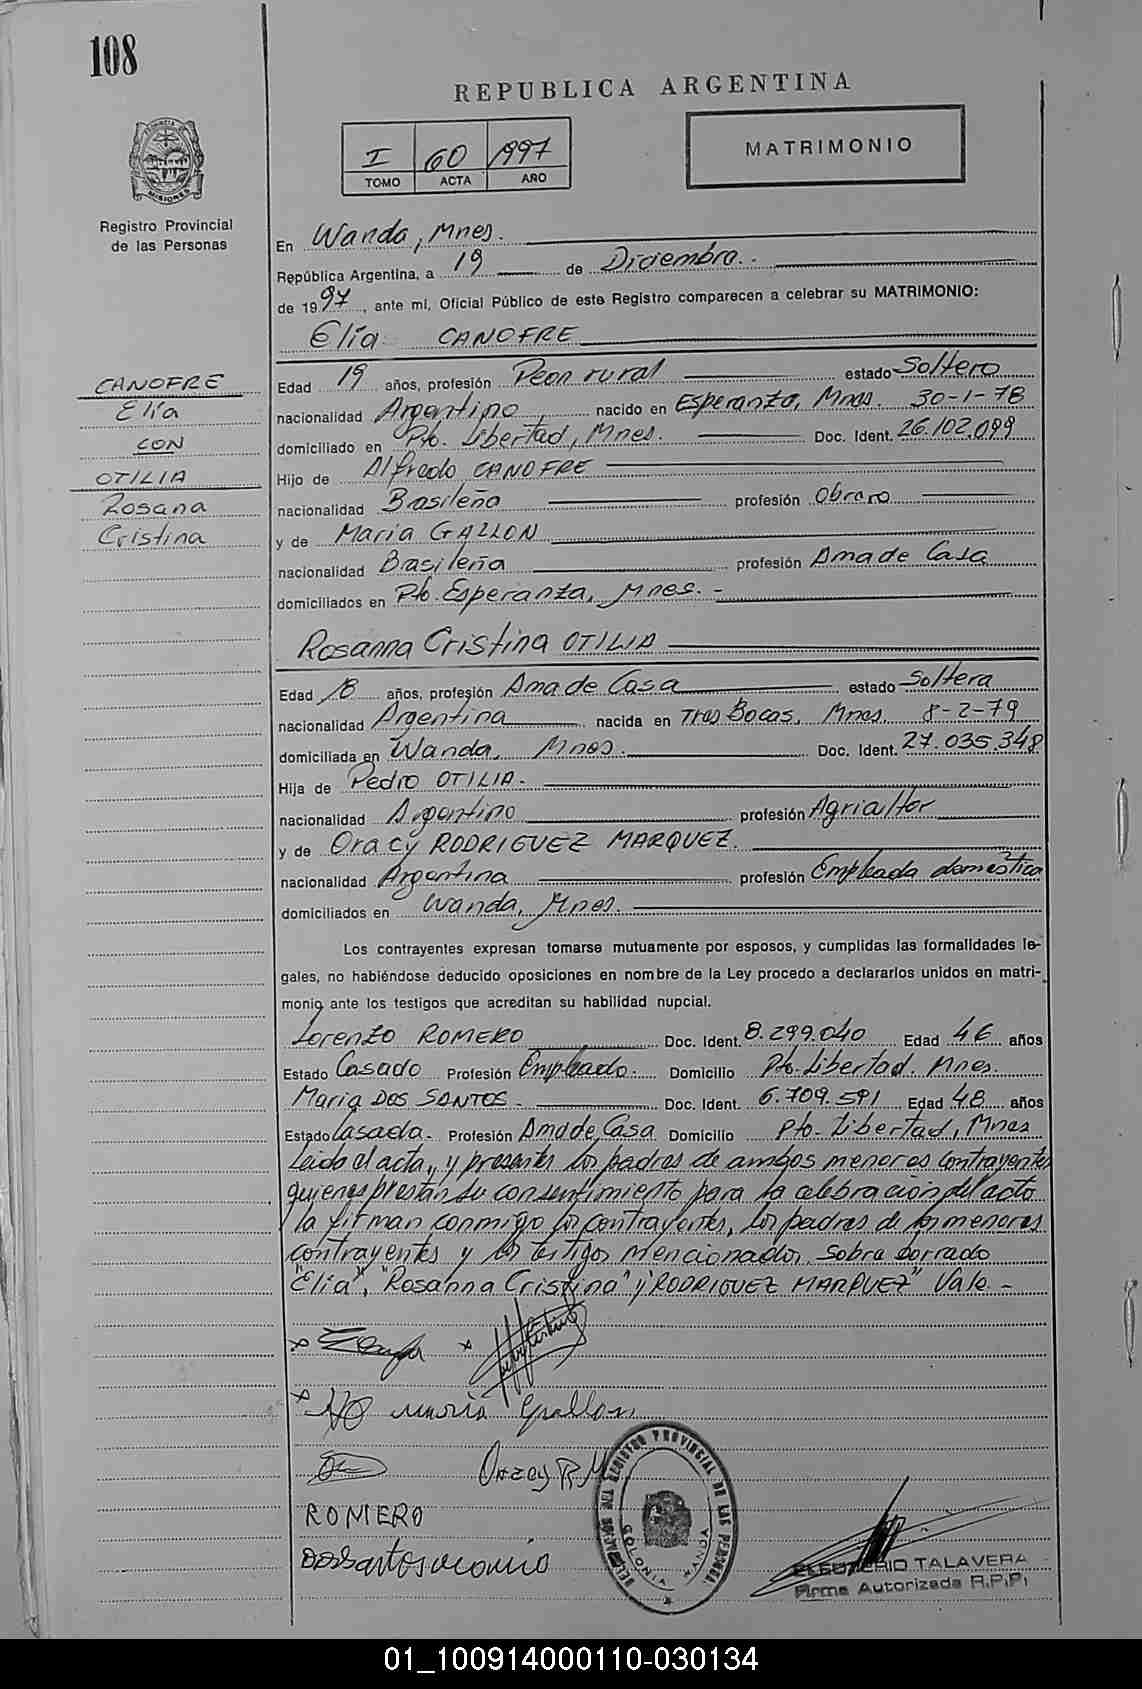 108
REPUBLICA ARGENTINA
I 60 1997
TOMO ACTA AÑO
MATRIMONIO
MISIONES
Registro Provincial
de las Personas
En Wanda, Mnes.
República Argentina, a 19 de Diciembre.
de 1997, ante mi, Oficial Público de este Registro comparecen a celebrar su MATRIMONIO:
Elía CANOFRE
CANOFRE
Elía
CON
OTILIA
Rosana
Cristina
Edad 19 años, profesión Peon rural estado Soltero
nacionalidad Argentino, nacido en Esperanza, Mnes. 30-1-78
domiciliado en Pto. Libertad, Mnes. Doc. Ident. 26.102.099
Hijo de Alfredo CANOFRE
nacionalidad Brasileña profesión Obrero
y de Maria GALLON
nacionalidad Brasileña profesión Ama de Casa
domiciliados en Pto. Esperanza, Mnes. -
Rosanna Cristina OTILIA
Edad 18 años, profesión Ama de Casa estado Soltera
nacionalidad Argentina nacida en Tres Bocas, Mnes. 8-2-79
domiciliada en Wanda, Mnes. Doc. Ident. 27.035.348
Hija de Pedro OTILIA.
nacionalidad Argentino profesión Agricultor
y de Oracy RODRIGUEZ MARQUEZ.
nacionalidad Argentina profesión Empleada doméstica
domiciliados en Wanda, Mnes.
Los contrayentes expresan tomarse mutuamente por esposos, y cumplidas las formalidades le-
gales, no habiéndose deducido oposiciones en nombre de la Ley procedo a declararlos unidos en matri-
monio ante los testigos que acreditan su habilidad nupcial.
Lorenzo ROMERO Doc. Ident. 8.299.040 Edad 46 años
Estado Casado Profesión Empleado. Domicilio Pto. Libertad. Mnes.
Maria DOS SANTOS. Doc. Ident. 6.709.591 Edad 48 años
Estado Casada. Profesión Ama de Casa Domicilio Pto. Libertad, Mnes
Leído el acta, y presentes los padres de ambos menores contrayentes
quienes prestan su consentimiento para la celebración del acto
la firman conmigo los contrayentes, los padres de los menores
contrayentes y los testigos mencionados. Sobre borrado
"Elía", "Rosanna Cristina" y "RODRIGUEZ MARQUEZ" Vale. -
maria Gallon
Oracy R M
ROMERO
REGISTRO PROVINCIAL DE LAS PERSONAS
COLONIA WANDA
ELEUTERIO TALAVERA
Firma Autorizada R.P.P.
01_100914000110-030134